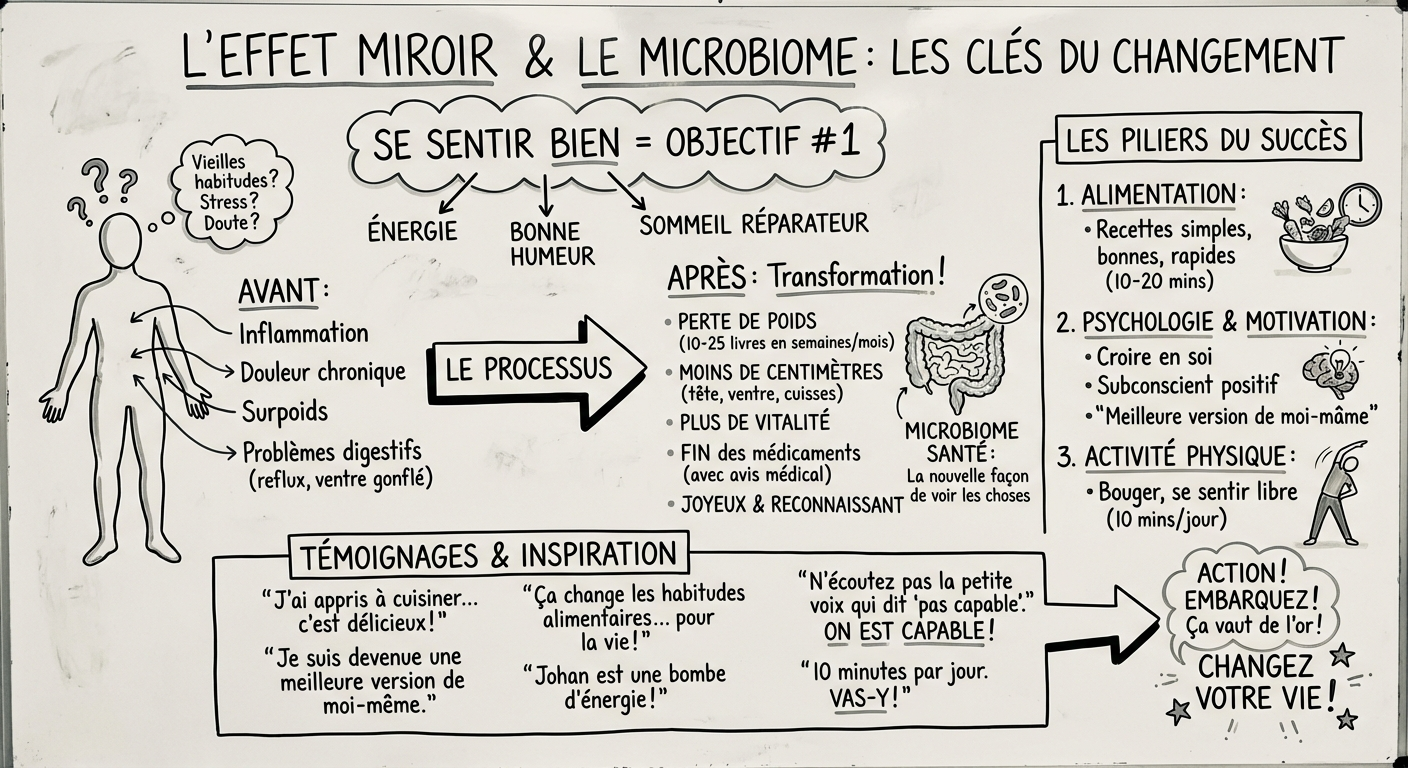 L'EFFET MIROIR & LE MICROBIOME : LES CLÉS DU CHANGEMENT
SE SENTIR BIEN = OBJECTIF #1
ÉNERGIE
BONNE
HUMEUR
SOMMEIL RÉPARATEUR
? ? ?
Vieilles
habitudes?
Stress?
Doute?
AVANT :
Inflammation
Douleur chronique
Surpoids
Problèmes digestifs
(reflux, ventre gonflé)
LE PROCESSUS
APRÈS : Transformation!
• PERTE DE POIDS
(10-25 livres en semaines/mois)
• MOINS DE CENTIMÈTRES
(tête, ventre, cuisses)
• PLUS DE VITALITÉ
• FIN des médicaments
(avec avis médical)
• JOYEUX & RECONNAISSANT
MICROBIOME
SANTÉ :
La nouvelle façon
de voir les choses
LES PILIERS DU SUCCÈS
1. ALIMENTATION :
• Recettes simples,
bonnes, rapides
(10-20 mins)
2. PSYCHOLOGIE & MOTIVATION :
• Croire en soi
• Subconscient positif
• "Meilleure version de moi-mâme"
3. ACTIVITÉ PHYSIQUE :
• Bouger, se sentir libre
(10 mins/jour)
TÉMOIGNAGES & INSPIRATION
"J'ai appris à cuisiner...
c'est délicieux!"
"Je suis devenue une
meilleure version de
moi-même."
"Ça change les habitudes
alimentaires... pour
la vie!"
"Johan est une bombe
d'énergie!"
"N'écoutez pas la petite
voix qui dit 'pas capable'."
ON EST CAPABLE!
"10 minutes par jour.
VAS-Y!"
ACTION!
EMBARQUEZ!
Ça vaut de l'or!
CHANGEZ
VOTRE VIE!